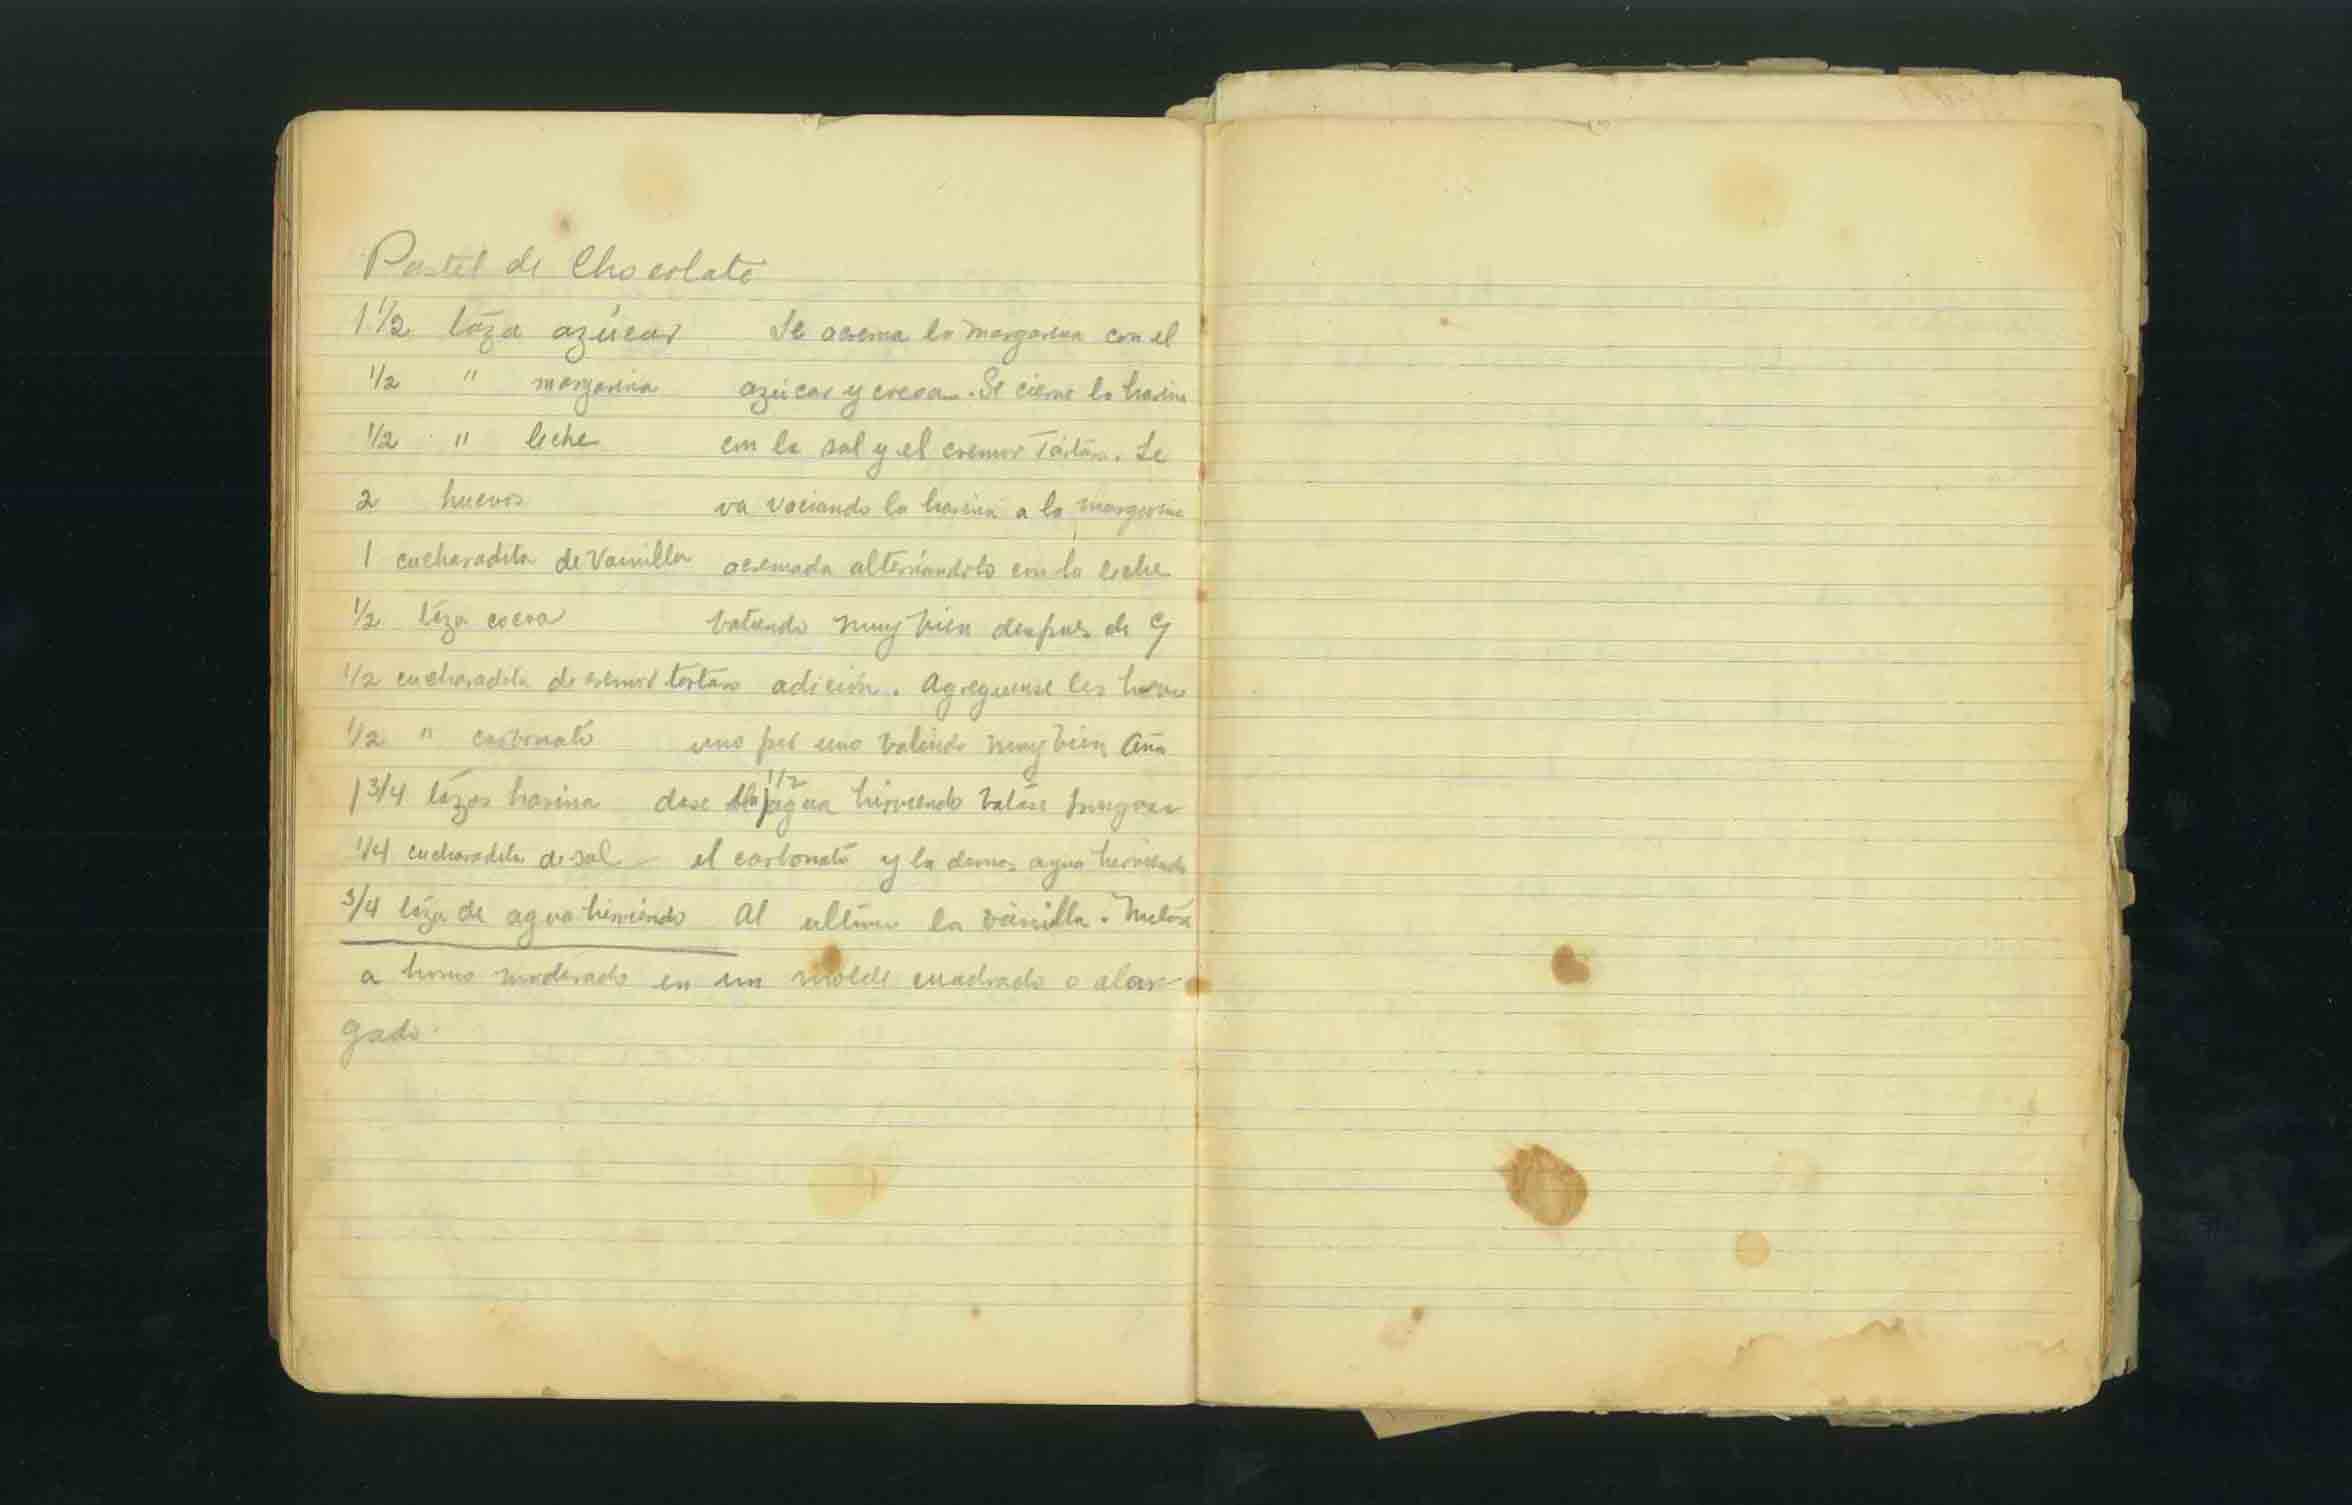 Pastel de Chocolate
1 1/2 táza azúcar Se acrema la margarina con el
1/2 " margarina azúcar y cocoa. Se cierne la harina
1/2 " leche con la sal y el cremor Tártaro. Se
2 huevos va vaciando la harina a la margarina
1 cucharadita de Vainilla acremada alternándola con la leche
1/2 táza cocoa batiendo muy bien despues de c/
1/2 cucharadita de cremor tartaro adición. Agreguense los huevos
1/2 " carbonato uno por uno batiendo muy bien Aña
1 3/4 tázas harina dase la 1/2 agua hirviendo batáse
1/4 cucharadita de sal el carbonato y la demas agua hirviendo
3/4 táza de agua hirviendo Al ultimo la vainilla. Metáse
a horno moderado en un molde cuadrado o alar-
gado.